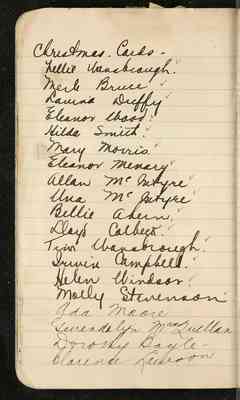 Christmas Cards -
Nellie Wansbrough
Merle Bruce
Lavina Duffy
Eleanor Woods
Hilda Smith
Mary Morris
Eleanor Menary
Allan McIntyre
Una McIntyre
Bellie Ahern
Lloyd
Wansbrough
Irwin Campbell
Helen Windsor
Molly Stevenson
Ida Moore
Gwendolyn MacQuillan
Dorothy Doyle -
Clarence